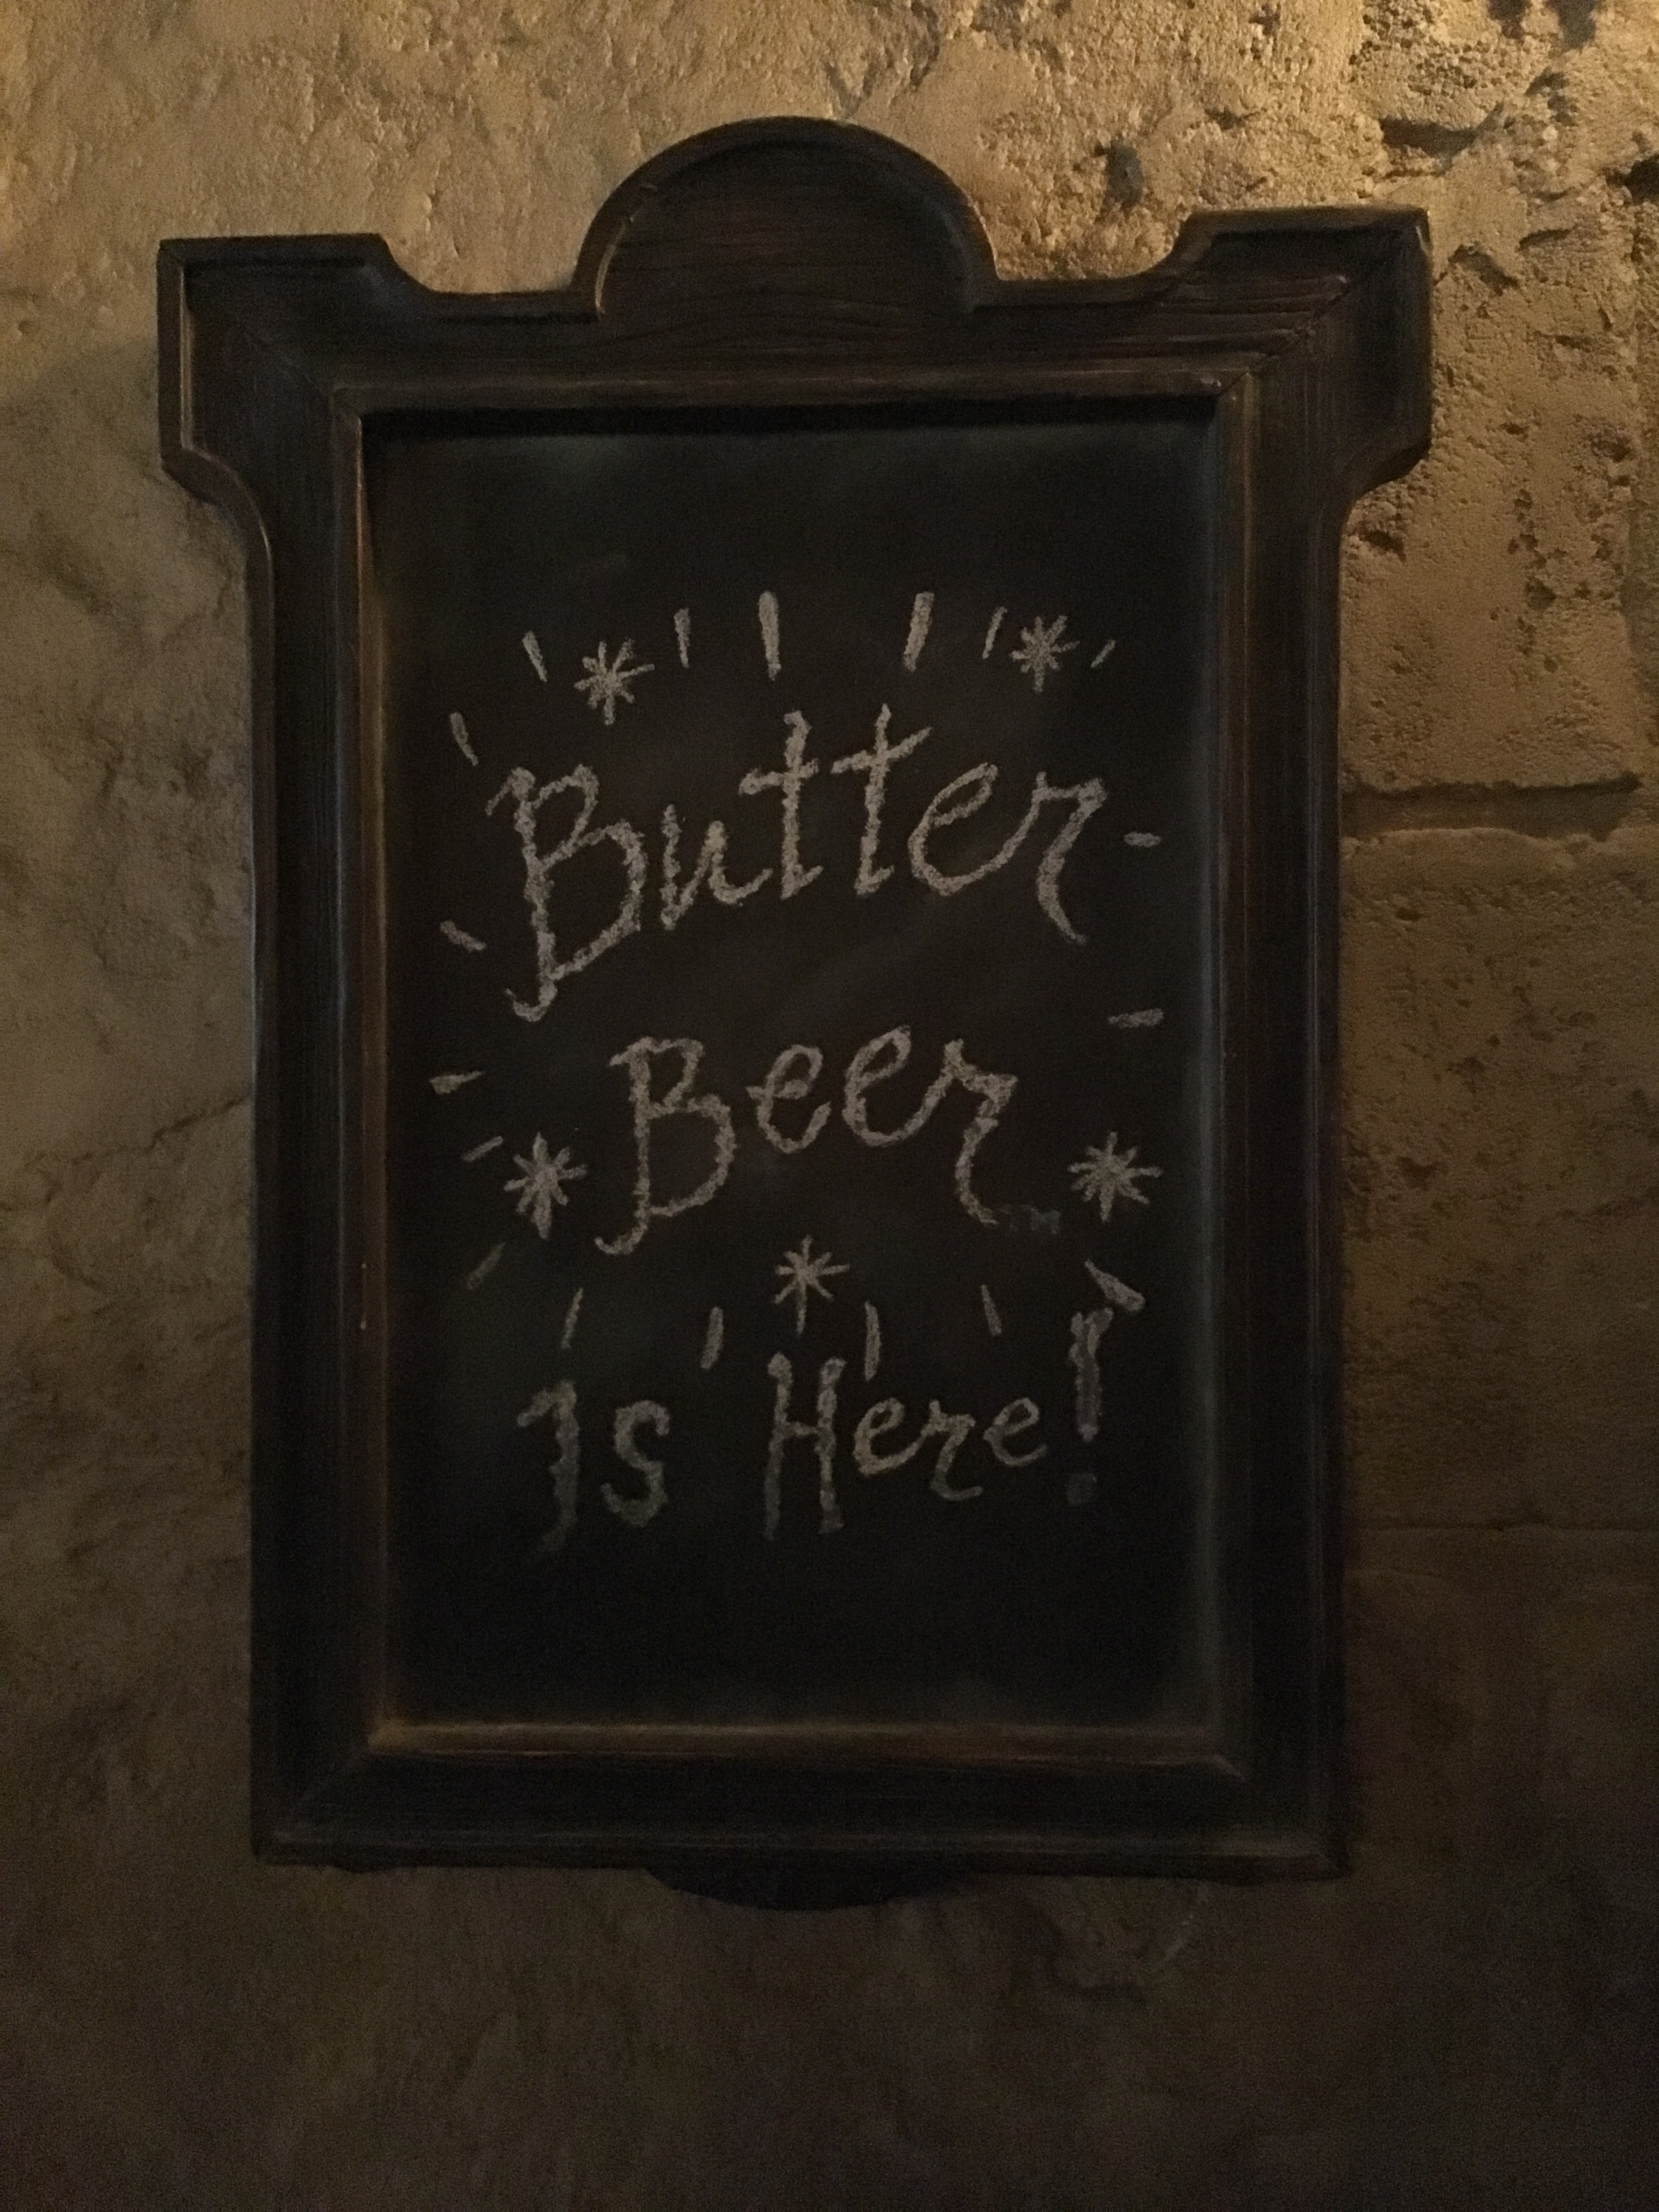 Butter
Beer™
Is Here!